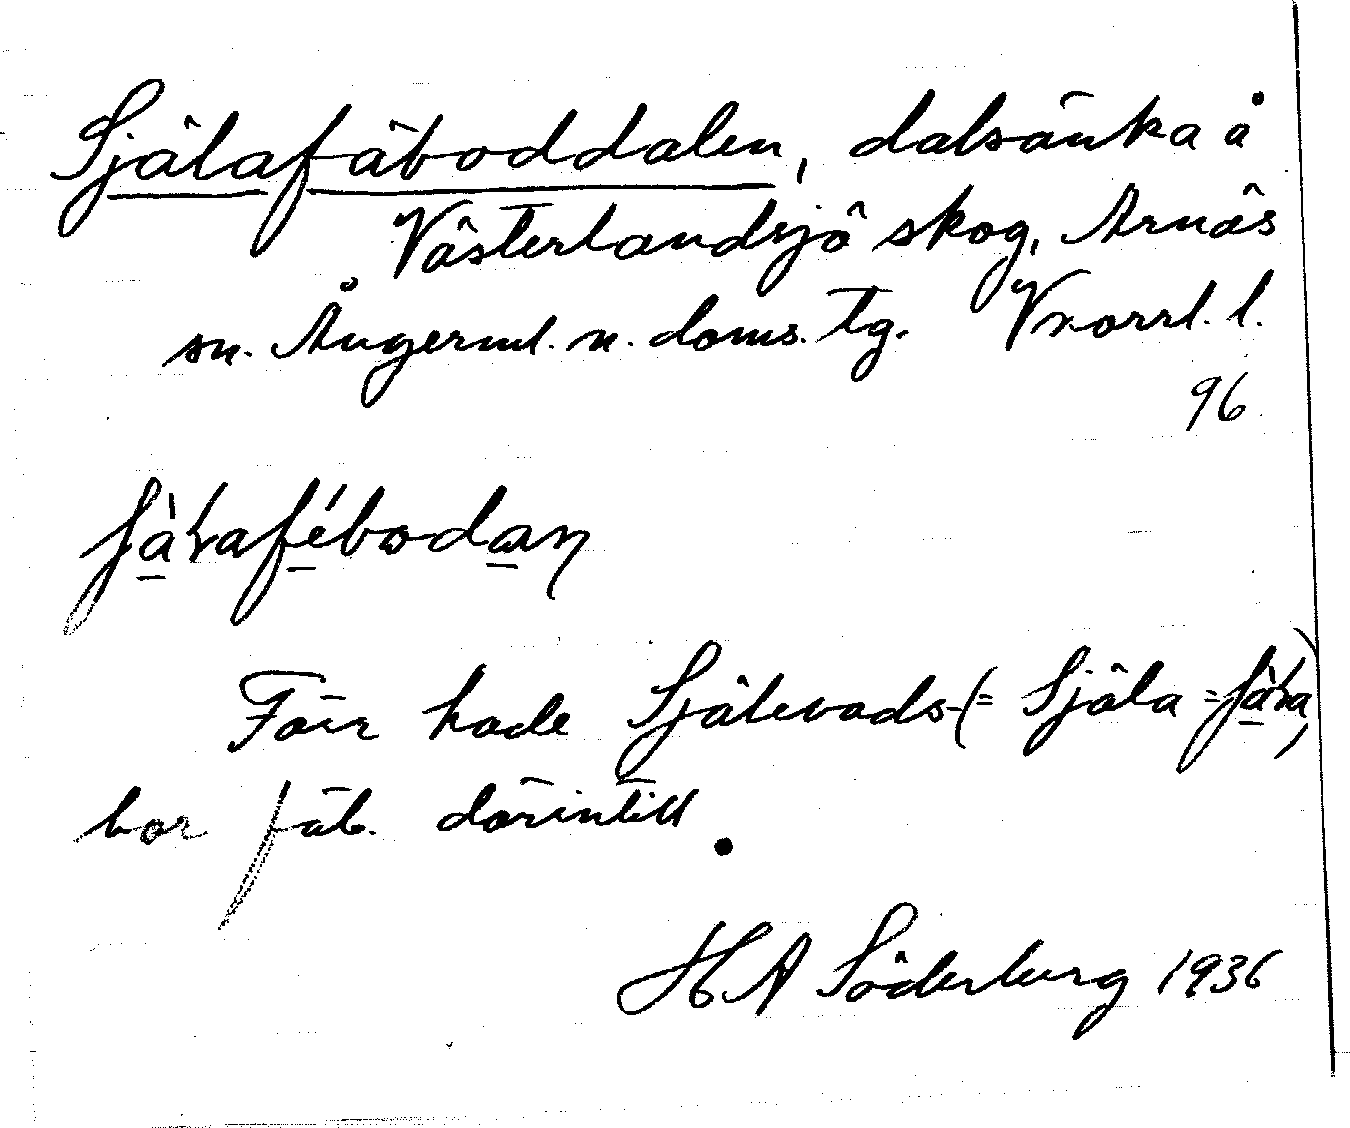 Själafäboddalen, dalsänka å
Västerlandsjö skog, Arnäs
sn. Ångerml. n. doms. tg. Vnorrl. l.
96
Förr hade Själevads- (= Själa =
bor fäb. därintill.
H A Söderberg 1936